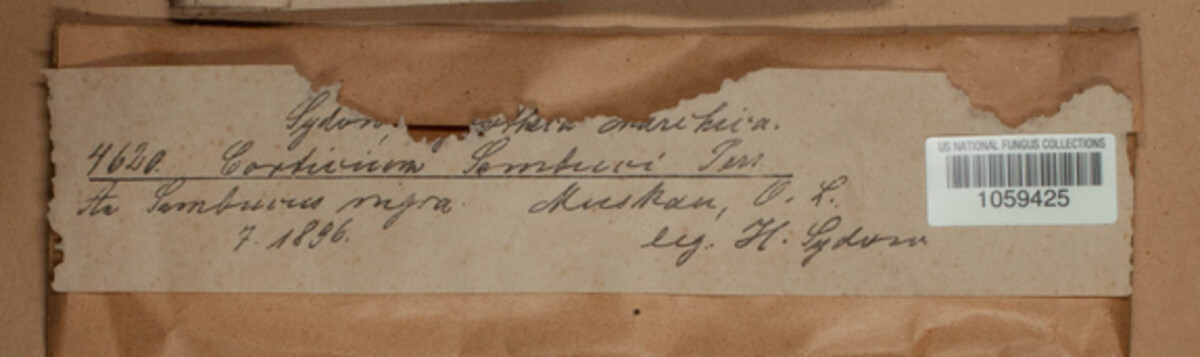 Sydow, marchica.
4620. Corticium Sambuci Pers.
An Sambucus nigra. Muskau, O. L.
7. 1896.
leg. H. Sydow
US NATIONAL FUNGUS COLLECTIONS
1059425